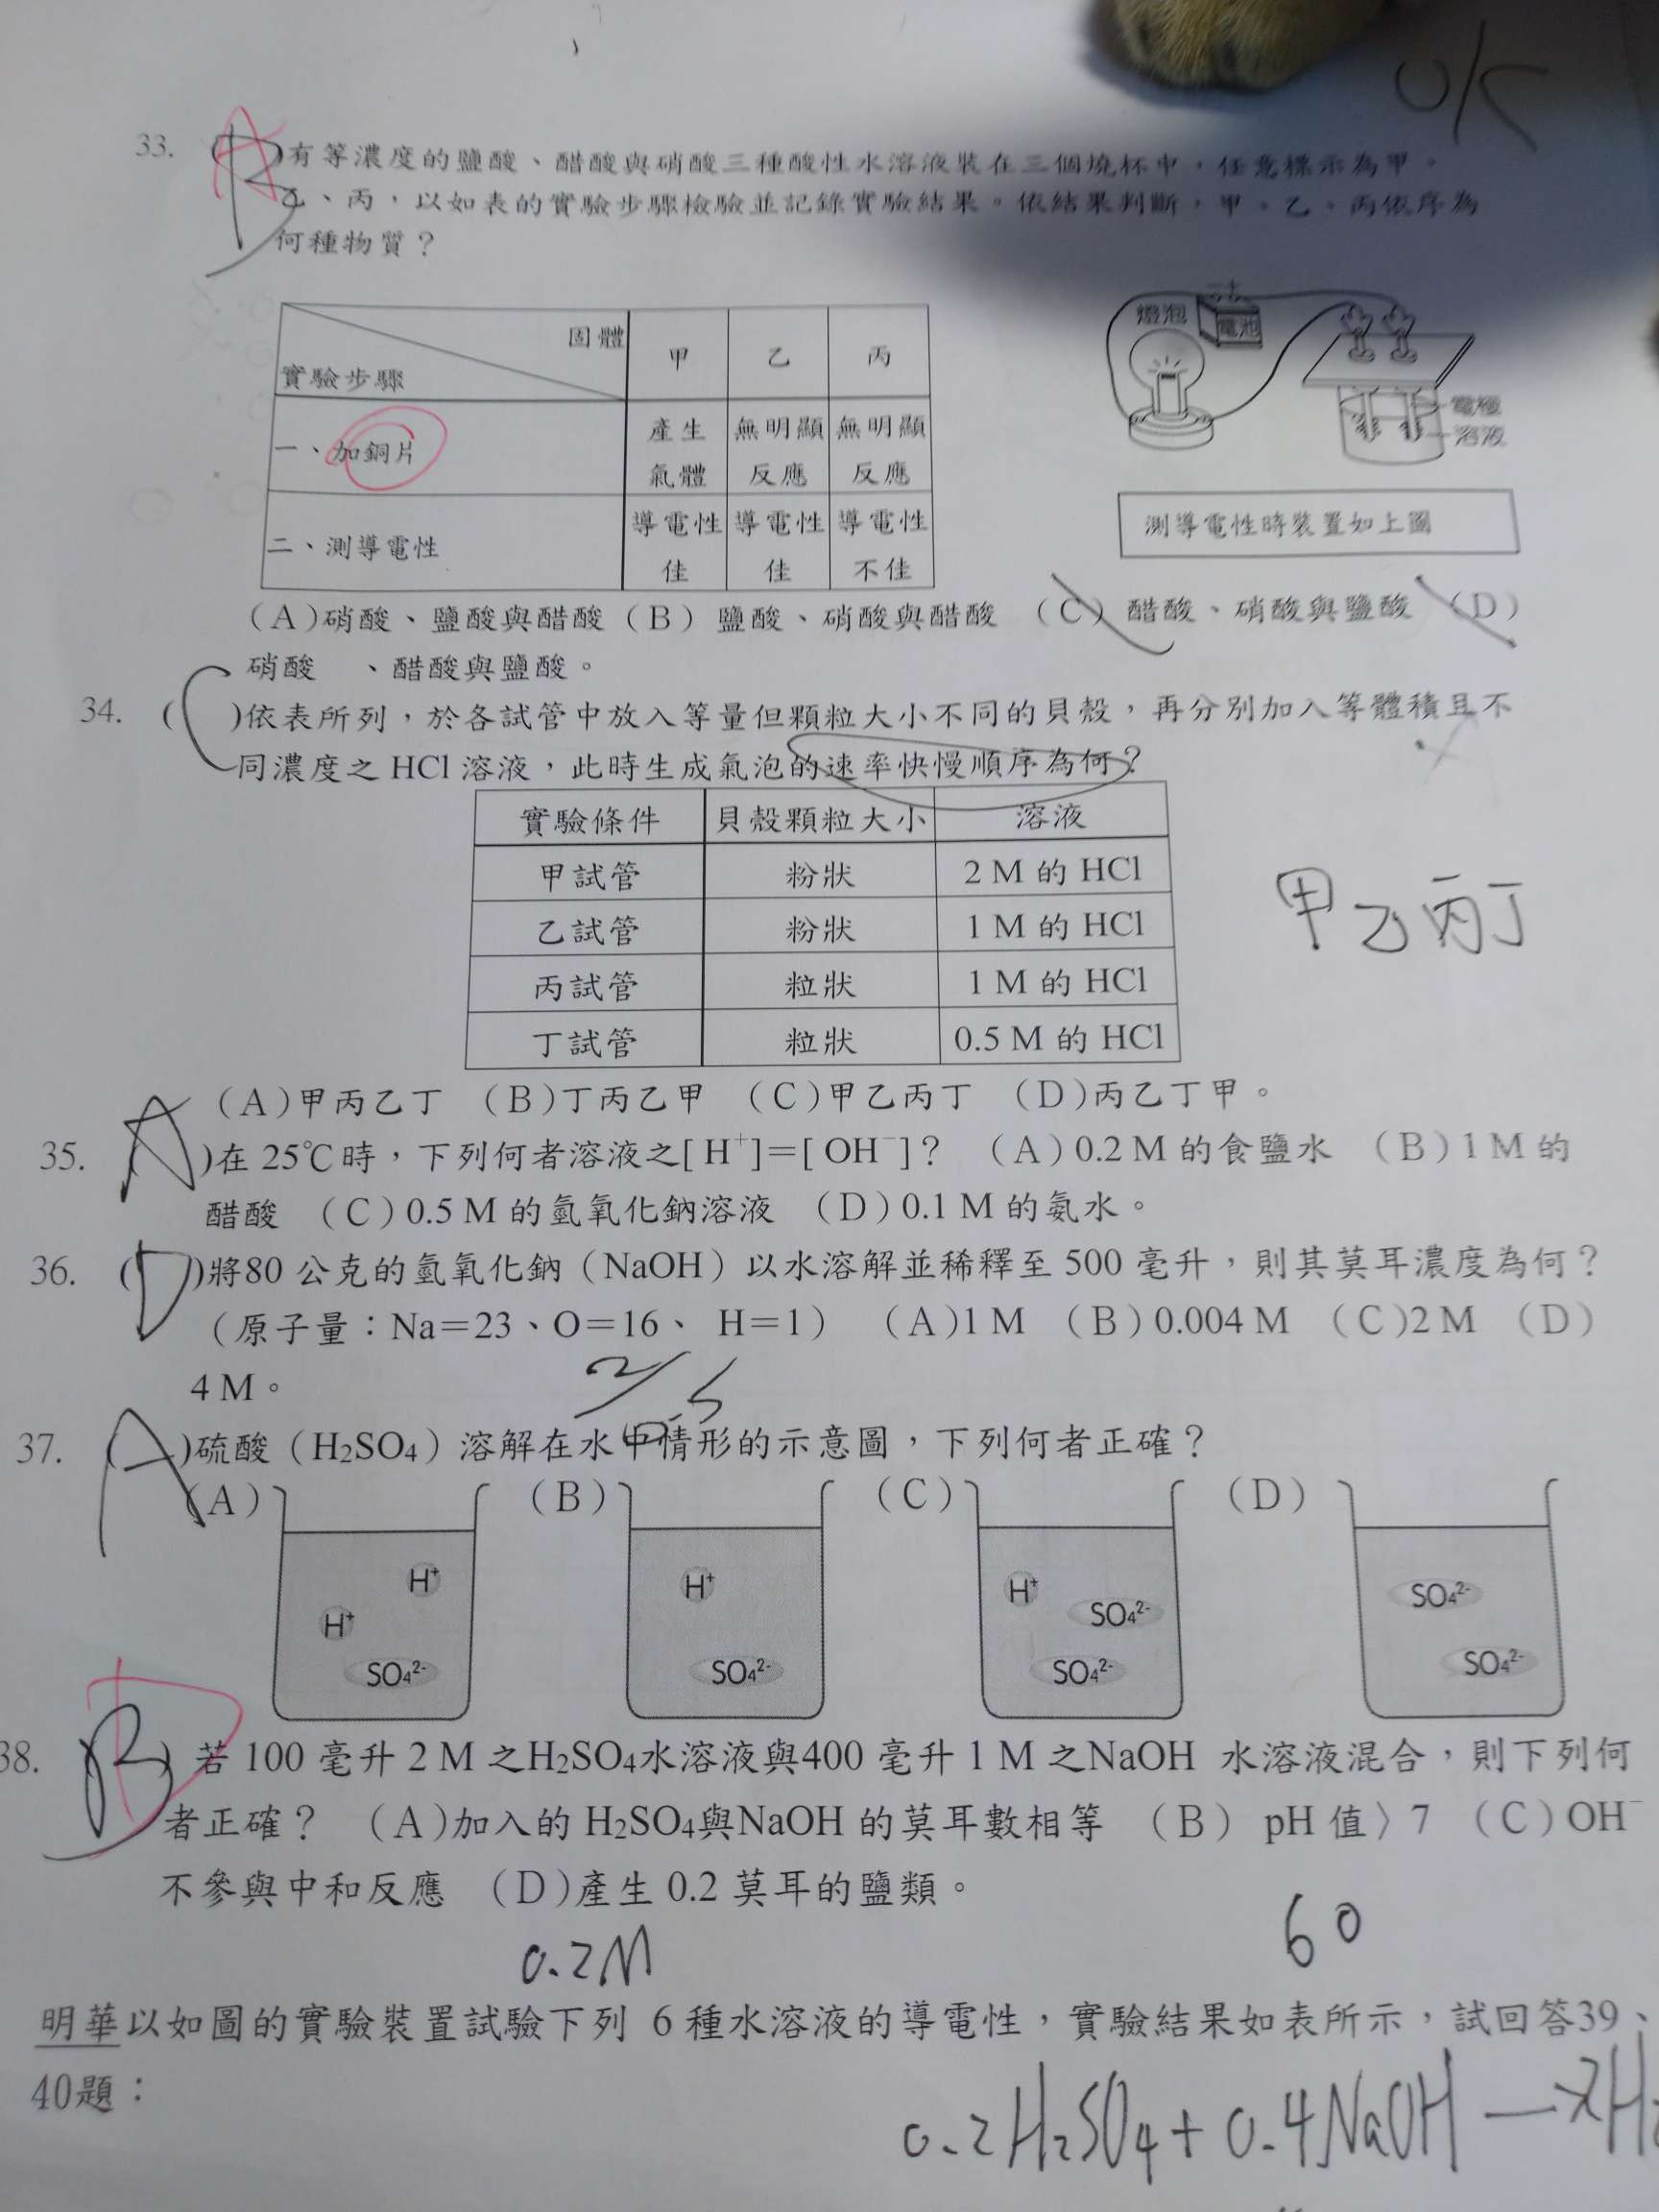 OK
33. (B)有等濃度的鹽酸、醋酸與硝酸三種酸性水溶液裝在三個燒杯中，任意標示為甲、
A
乙、丙，以如表的實驗步驟檢驗並記錄實驗結果。依結果判斷，甲、乙、丙依序為
何種物質？
固體
實驗步驟
甲 乙 丙
一、加銅片 產生氣體 無明顯反應 無明顯反應
二、測導電性 導電性佳 導電性佳 導電性不佳
燈泡
電池
電極
溶液
測導電性時裝置如上圖
（A)硝酸、鹽酸與醋酸（B）鹽酸、硝酸與醋酸 （C）醋酸、硝酸與鹽酸 （D）
硝酸 、醋酸與鹽酸。
34. (C)依表所列，於各試管中放入等量但顆粒大小不同的貝殼，再分別加入等體積且不
同濃度之 HCl 溶液，此時生成氣泡的速率快慢順序為何？
實驗條件 貝殼顆粒大小 溶液
甲試管 粉狀 2 M 的 HCl
乙試管 粉狀 1 M 的 HCl
丙試管 粒狀 1 M 的 HCl
丁試管 粒狀 0.5 M 的 HCl
甲乙丙丁
（A)甲丙乙丁 （B)丁丙乙甲 （C)甲乙丙丁 （D)丙乙丁甲。
35. (A)在 25℃時，下列何者溶液之[ H⁺]＝[ OH⁻]？ （A）0.2 M 的食鹽水 （B）1 M 的
醋酸 （C）0.5 M 的氫氧化鈉溶液 （D）0.1 M 的氨水。
36. (D)將80 公克的氫氧化鈉（NaOH）以水溶解並稀釋至 500 毫升，則其莫耳濃度為何？
（原子量：Na＝23、O＝16、 H＝1） （A)1 M （B）0.004 M （C)2 M （D）
4 M。
2/0.5
37. (A)硫酸（H₂SO₄）溶解在水中情形的示意圖，下列何者正確？
（A） （B） （C） （D）
H⁺ H⁺ SO₄²⁻
H⁺ SO₄²⁻
H⁺ SO₄²⁻ SO₄²⁻
SO₄²⁻ SO₄²⁻
38. (B) 若 100 毫升 2 M 之H₂SO₄水溶液與400 毫升 1 M 之NaOH 水溶液混合，則下列何
D
者正確？ （A)加入的 H₂SO₄與NaOH 的莫耳數相等 （B） pH 值〉7 （C）OH⁻
不參與中和反應 （D)產生 0.2 莫耳的鹽類。
0.2M
60
明華以如圖的實驗裝置試驗下列 6 種水溶液的導電性，實驗結果如表所示，試回答39、
40題：
0.2H₂SO₄+0.4NaOH—